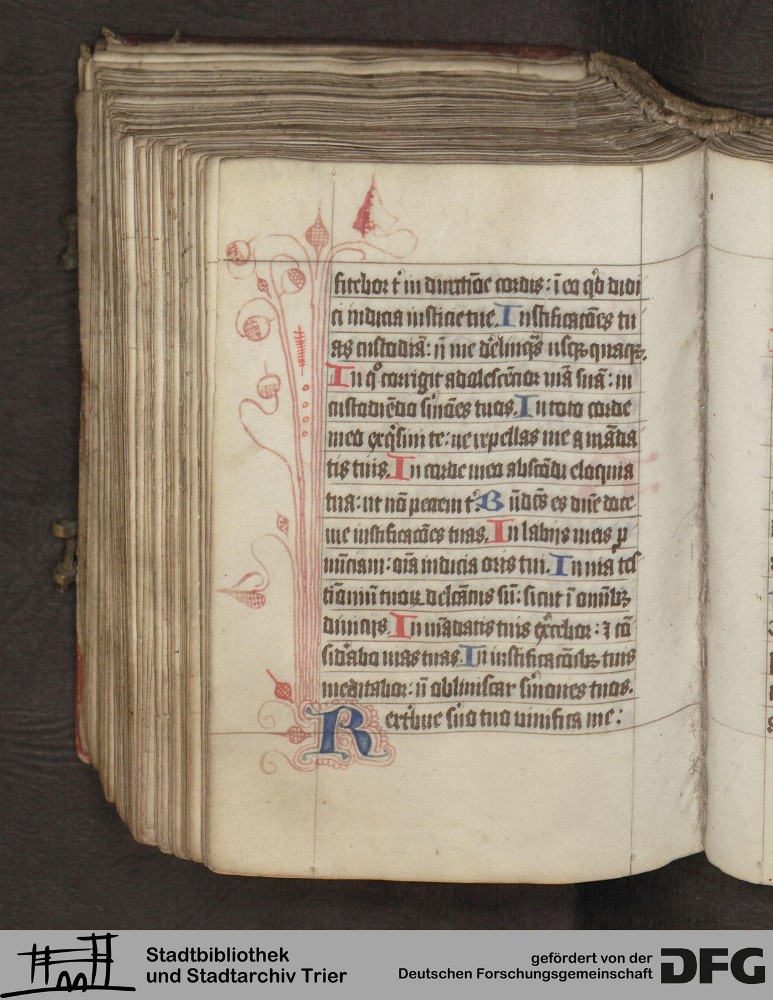 fitebor t' in directiōe cordis : ī eo qd' didi
ci iudicia iusticie tue. Iustificatōes tu
as custodiā : n̄ me delinq̄s usq; quaq;.
In q° corrigit adolescētior uiā suā : in
custodiēdo s'mōes tuos. In toto corde
meo exq'siui te : ne repellas me a mādа
tis tuis. In corde meo abscōdi eloquia
tua : ut nō peccem t'. Bn̄dc̄s es dn̄e doce
me iustificatōes tuas. In labijs meis p
nūciaui : oīa iudicia oris tui. In uia tes
tiōmniū tuoꝝ delectatus sū : sicut ī omīb;
diuicijs. In mādatis tuis exercebor : ⁊ cō
sid'abo uias tuas. In iustificatōib; tuis
meditabor : n̄ obliuiscar s'mones tuos.
Retribue s'uo tuo uiuifica me :
Stadtbibliothek
und Stadtarchiv Trier
gefördert von der
Deutschen Forschungsgemeinschaft
DFG